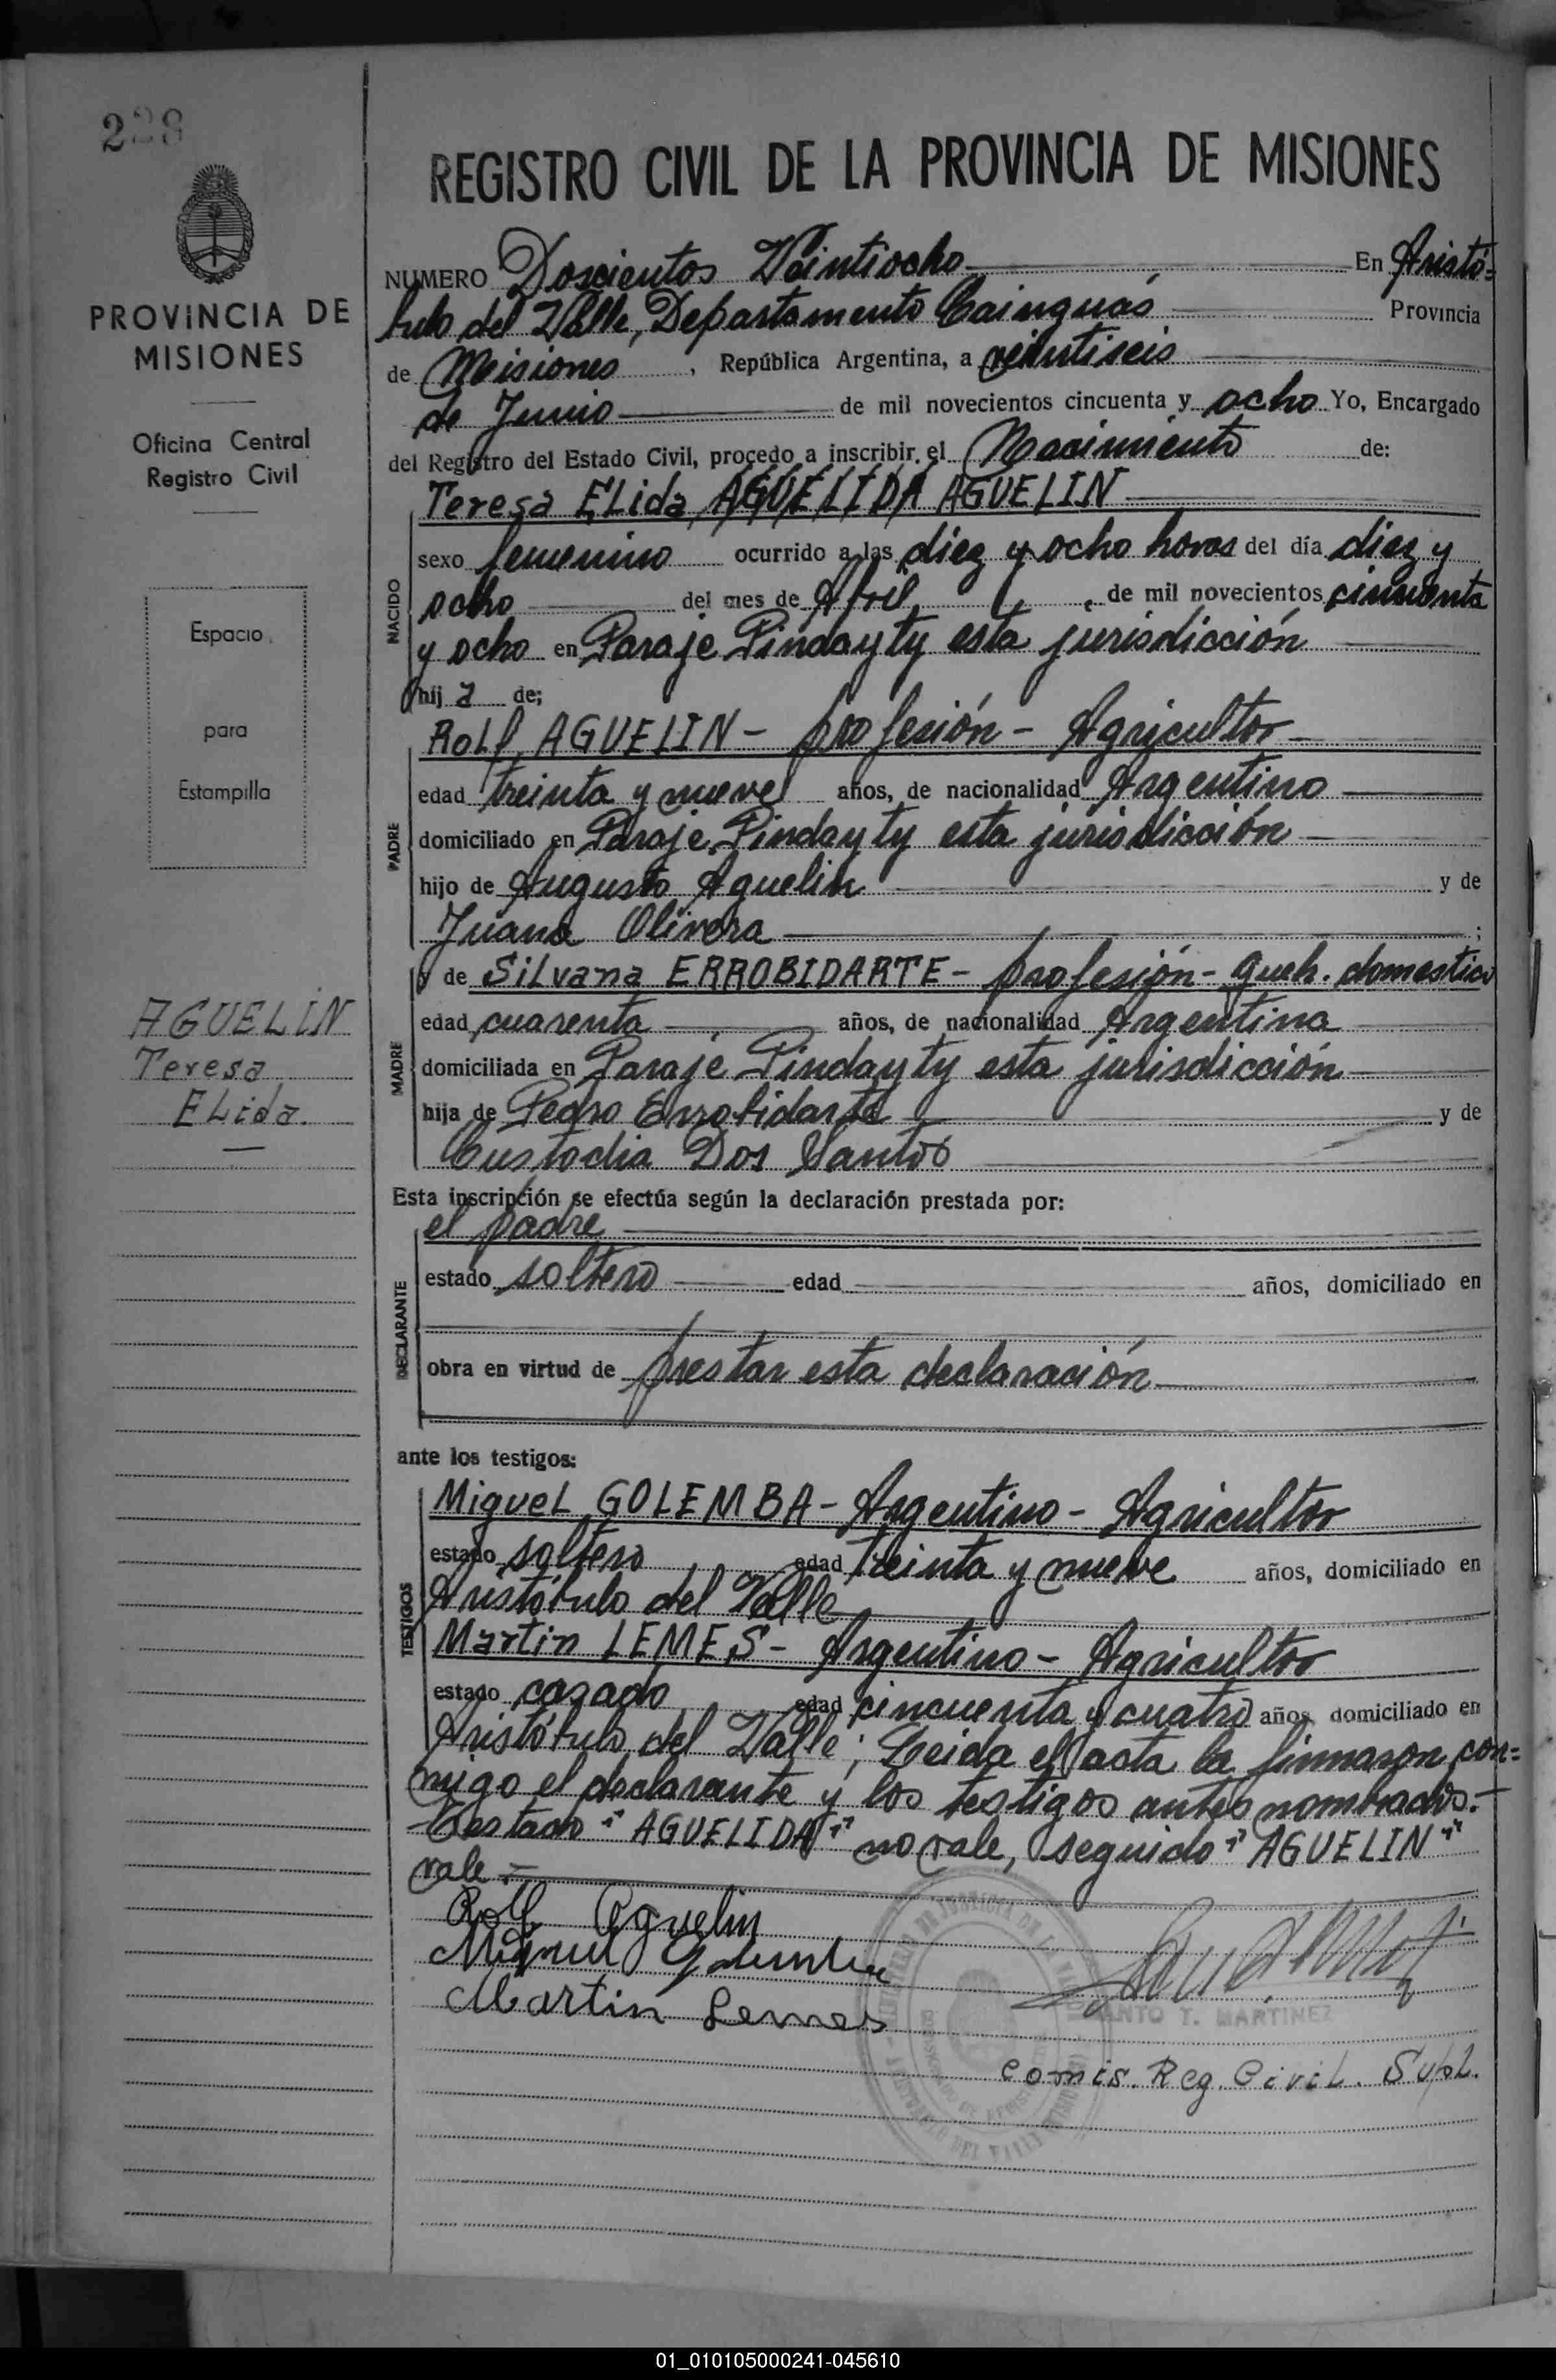 228
PROVINCIA DE
MISIONES
Oficina Central
Registro Civil
Espacio
para
Estampilla
AGUELIN
Teresa
ELida.
REGISTRO CIVIL DE LA PROVINCIA DE MISIONES
NUMERO Doscientos Veintiocho En Aristó=
bulo del Valle, Departamento Cainguás Provincia
de Misiones, República Argentina, a veintiseis
de Junio de mil novecientos cincuenta y ocho Yo, Encargado
del Registro del Estado Civil, procedo a inscribir el Nacimiento de:
Teresa ELida AGUELIDA AGUELIN
NACIDO
sexo femenino ocurrido a las diez y ocho horas del día diez y
ocho del mes de Abril, de mil novecientos cincuenta
y ocho en Paraje Pindayty esta jurisdicción
hija de;
PADRE
RoLf AGUELIN - profesión - Agricultor
edad treinta y nueve años, de nacionalidad Argentino
domiciliado en Paraje Pindayty esta jurisdicción
hijo de Augusto Aguelin y de
Juana Olivera ;
MADRE
y de SiLvana ERROBIDARTE - profesión - queh. domestico
edad cuarenta años, de nacionalidad Argentina
domiciliada en Paraje Pindayty esta jurisdicción
hija de Pedro Errobidarte y de
Custodia Dos Santos
Esta inscripción se efectúa según la declaración prestada por:
DECLARANTE
el padre
estado soltero edad años, domiciliado en
obra en virtud de prestar esta declaración
ante los testigos:
TESTIGOS
MigueL GOLEMBA - Argentino - Agricultor
estado soltero edad treinta y nueve años, domiciliado en
Aristóbulo del Valle
Martin LEMES - Argentino - Agricultor
estado casado edad cincuenta y cuatro años, domiciliado en
Aristóbulo del Valle; Leida el acta la firmaron con=
migo el declarante y los testigos antes nombrados.-
Testado "AGUELIDA" no vale, seguido "AGUELIN"
vale.=
Rolf Aguelin
Miguel Golemba
Martin Lemes
SANTO T. MARTINEZ
Comis. Reg. CiviL. SupL.
01_010105000241-045610